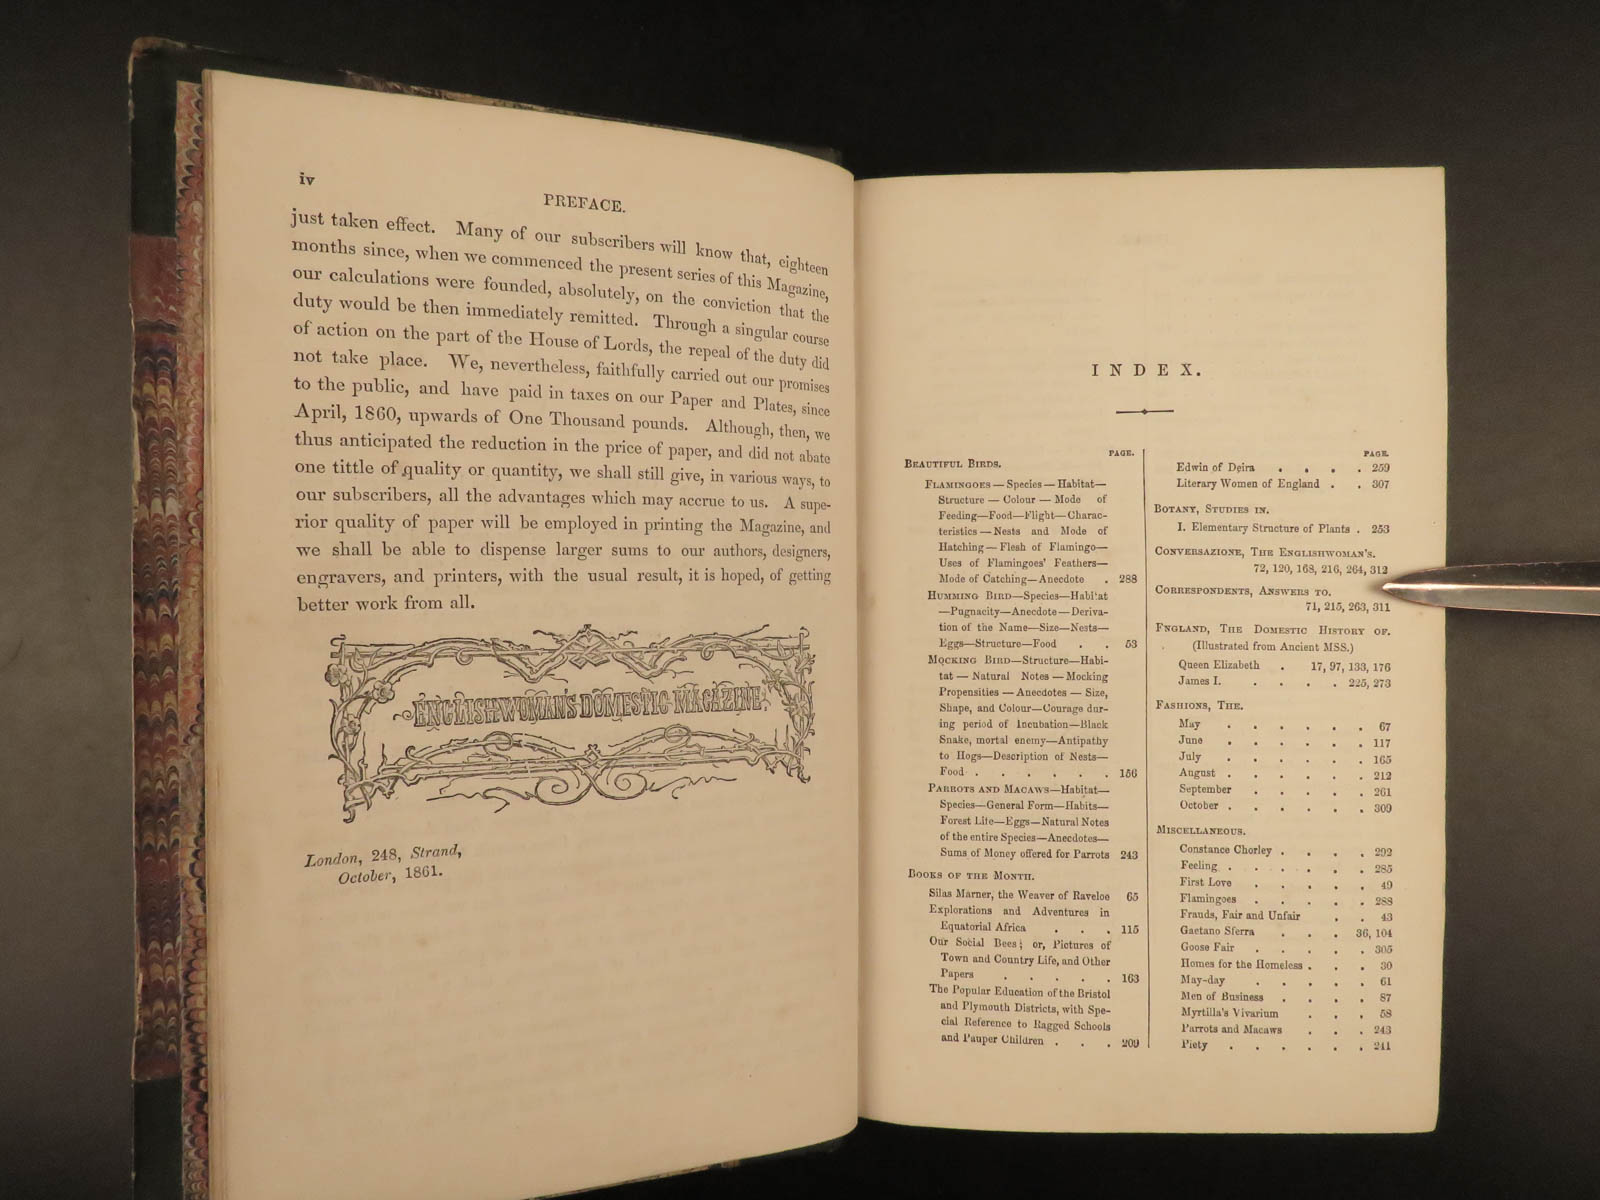 iv
PREFACE.
just taken effect. Many of our subscribers will know that, eighteen
months since, when we commenced the present series of this Magazine,
our calculations were founded, absolutely, on the conviction that the
duty would be then immediately remitted. Through a singular course
of action on the part of the House of Lords, the repeal of the duty did
not take place. We, nevertheless, faithfully carried out our promises
to the public, and have paid in taxes on our Paper and Plates, since
April, 1860, upwards of One Thousand pounds. Although, then, we
thus anticipated the reduction in the price of paper, and did not abate
one tittle of quality or quantity, we shall still give, in various ways, to
our subscribers, all the advantages which may accrue to us. A supe-
rior quality of paper will be employed in printing the Magazine, and
we shall be able to dispense larger sums to our authors, designers,
engravers, and printers, with the usual result, it is hoped, of getting
better work from all.
ENGLISHWOMAN'S DOMESTIC MAGAZINE
London, 248, Strand,
October, 1861.
INDEX.
PAGE.
BEAUTIFUL BIRDS.
FLAMINGOES—Species—Habitat—
Structure—Colour—Mode of
Feeding—Food—Flight—Charac-
teristics—Nests and Mode of
Hatching—Flesh of Flamingo—
Uses of Flamingoes' Feathers—
Mode of Catching—Anecdote . 288
HUMMING BIRD—Species—Habitat
—Pugnacity—Anecdote—Deriva-
tion of the Name—Size—Nests—
Eggs—Structure—Food . . 53
MOCKING BIRD—Structure—Habi-
tat—Natural Notes—Mocking
Propensities—Anecdotes—Size,
Shape, and Colour—Courage dur-
ing period of Incubation—Black
Snake, mortal enemy—Antipathy
to Hogs—Description of Nests—
Food . . . . . . 156
PARROTS AND MACAWS—Habitat—
Species—General Form—Habits—
Forest Life—Eggs—Natural Notes
of the entire Species—Anecdotes—
Sums of Money offered for Parrots 243
BOOKS OF THE MONTH.
Silas Marner, the Weaver of Raveloe 65
Explorations and Adventures in
Equatorial Africa . . . 115
Our Social Bees; or, Pictures of
Town and Country Life, and Other
Papers . . . . . 163
The Popular Education of the Bristol
and Plymouth Districts, with Spe-
cial Reference to Ragged Schools
and Pauper Children . . . 209
PAGE.
Edwin of Deira . . . . 259
Literary Women of England . . 307
BOTANY, STUDIES IN.
I. Elementary Structure of Plants . 253
CONVERSAZIONE, THE ENGLISHWOMAN'S.
72, 120, 168, 216, 264, 312
CORRESPONDENTS, ANSWERS TO.
71, 215, 263, 311
ENGLAND, THE DOMESTIC HISTORY OF.
(Illustrated from Ancient MSS.)
Queen Elizabeth . 17, 97, 133, 176
James I. . . . . 225, 273
FASHIONS, THE.
May . . . . . . 67
June . . . . . . 117
July . . . . . . 165
August . . . . . . 212
September . . . . . 261
October . . . . . . 309
MISCELLANEOUS.
Constance Chorley . . . . 292
Feeling . . . . . . 285
First Love . . . . . 49
Flamingoes . . . . . 288
Frauds, Fair and Unfair . . 43
Gaetano Sferra . . . 36, 104
Goose Fair . . . . . 305
Homes for the Homeless . . . 30
May-day . . . . . 61
Men of Business . . . . 87
Myrtilla's Vivarium . . . 58
Parrots and Macaws . . . 243
Piety . . . . . . 241